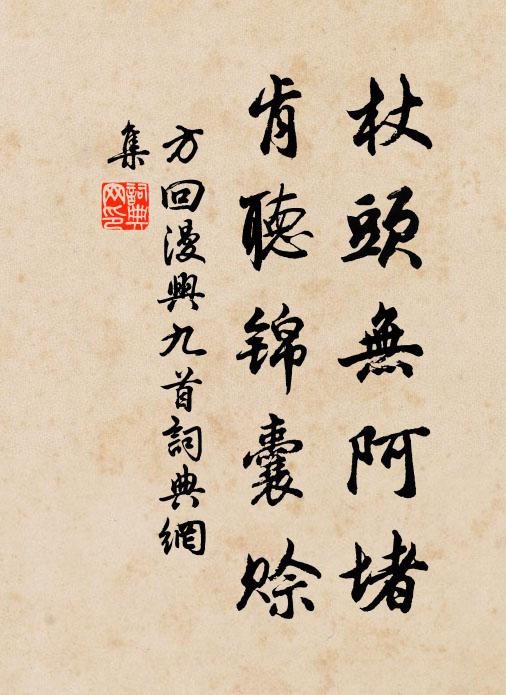 杖頭無阿堵
肯聽錦囊賒
方回漫興九首詞典網
集
詞典網印